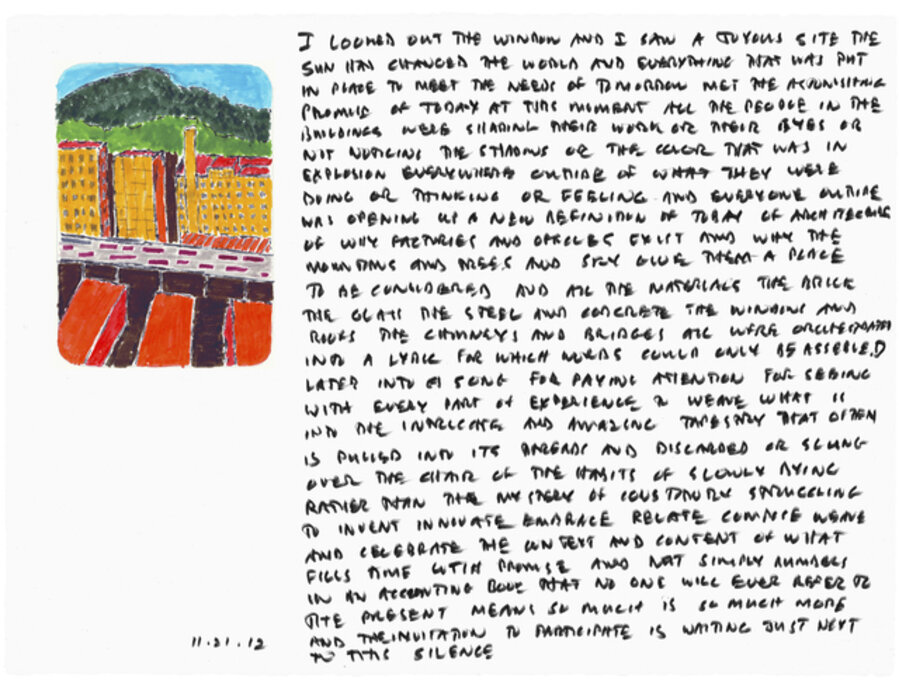 I LOOKED OUT THE WINDOW AND I SAW A JOYOUS SITE THE
SUN HAS CHANGED THE WORLD AND EVERYTHING THAT WAS PUT
IN PLACE TO MEET THE NEEDS OF TOMORROW MET THE ASTONISHING
PROMISE OF TODAY AT THIS MOMENT ALL THE PEOPLE IN THE
BUILDINGS WERE SHARING THEIR WORK OR THEIR EYES OR
NOT NOTICING THE SHADOWS OR THE COLOR THAT WAS IN
EXPLOSION EVERYWHERE OUTSIDE OF WHAT THEY WERE
DOING OR THINKING OR FEELING AND EVERYONE OUTSIDE
WAS OPENING UP A NEW DEFINITION OF TODAY OF ARCHITECTURE
OF WHY FACTORIES AND OFFICES EXIST AND WHY THE
MOUNTAINS AND TREES AND SKY GIVE THEM A PLACE
TO BE CONSIDERED AND ALL THE MATERIALS THE BRICK
THE GLASS THE STEEL AND CONCRETE THE WINDOWS AND
ROOFS THE CHIMNEYS AND BRIDGES ALL WERE ORCHESTRATED
INTO A LYRIC FOR WHICH WORDS COULD ONLY BE ASSEBLED
LATER INTO A SONG FOR PAYING ATTENTION FOR SEEING
WITH EVERY PART OF EXPERIENCE TO WEAVE WHAT IS
INTO THE INTRICATE AND AMAZING TAPESTRY THAT OFTEN
IS PULLED INTO ITS THREADS AND DISCARDED OR SLUNG
OVER THE CHAIR OF THE HABITS OF SLOWLY DYING
RATHER THAN THE MYSTERY OF CONSTANTLY STRUGGLING
TO INVENT INNOVATE EMBRACE RELATE COMPOSE WEAVE
AND CELEBRATE THE CONTEXT AND CONTENT OF WHAT
FILLS TIME WITH PROMISE AND NOT SIMPLY NUMBERS
IN AN ACCOUNTING BOOK THAT NO ONE WILL EVER REFER TO
THE PRESENT MEANS SO MUCH IS SO MUCH MORE
AND THE INVITATION TO PARTICIPATE IS WAITING JUST NEXT
TO THIS SILENCE
11.21.12